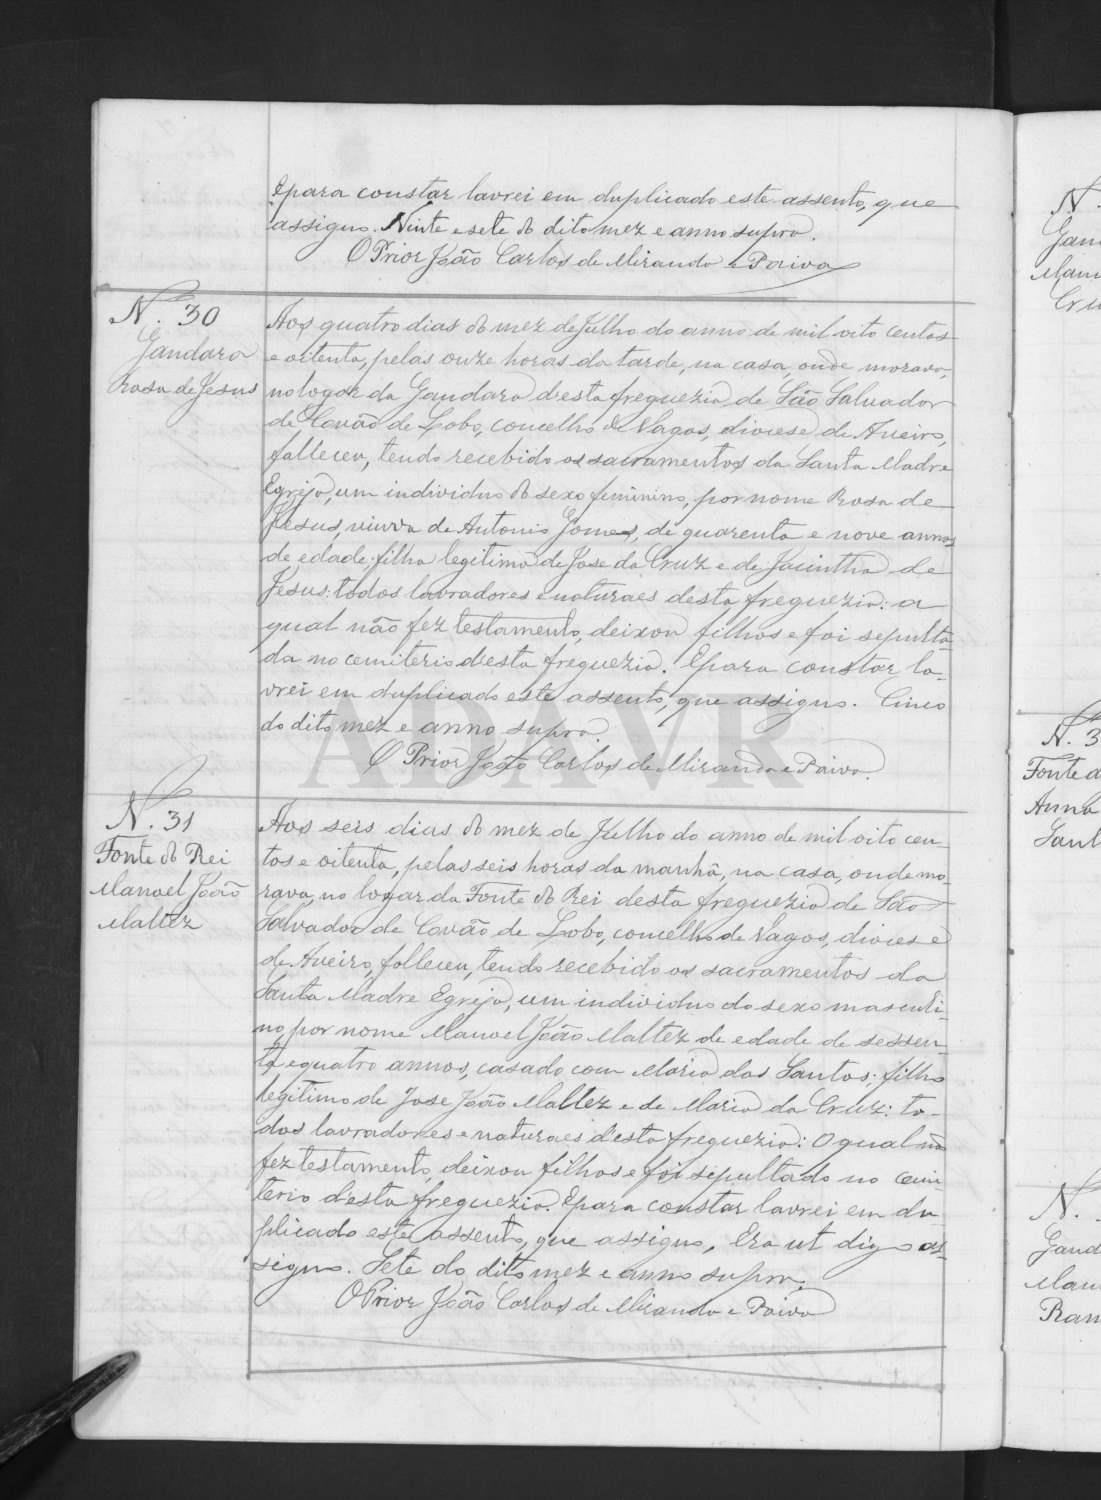 E para constar lavrei em duplicado este assento, que
assigno. Vinte e sete do dito mez e anno supra.
O Prior João Carlos de Miranda e Paiva
N. 30
Gandara
Rosa de Jesus
Aos quatro dias do mez de Julho do anno de mil oito centos
e oitenta, pelas onze horas da tarde, na casa, onde morava,
no logar da Gandara d'esta freguezia de São Salvador
de Covão de Lobo, concelho de Vagos, diocese de Aveiro,
falleceu, tendo recebido os sacramentos da Santa Madre
Egreja, um individuo do sexo feminino, por nome Rosa de
Jesus, viuva de Antonio Gomes, de quarenta e nove annos
de edade, filha legitima de Jose da Cruz e de Jacintha de
Jesus: todos lavradores e naturaes desta freguezia: a
qual não fez testamento, deixou filhos e foi sepulta-
da no cemiterio d'esta freguezia. E para constar la-
vrei em duplicado este assento, que assigno. Cinco
do dito mez e anno supra.
O Prior João Carlos de Miranda e Paiva.
N. 31
Fonte do Rei
Manoel João
Maltez
Aos seis dias do mez de Julho do anno de mil oito cen-
tos e oitenta, pelas seis horas da manhã, na casa, onde mo-
rava, no logar da Fonte do Rei desta freguezia de São
Salvador de Covão de Lobo, concelho de Vagos, diocese
de Aveiro, falleceu, tendo recebido os sacramentos da
Santa Madre Egreja, um individuo do sexo masculi-
no, por nome Manoel João Maltez de edade de sessen-
ta e quatro annos, casado com Maria dos Santos: filho
legitimo de Jose João Maltez e de Maria da Cruz: to-
dos lavradores e naturaes d'esta freguezia: O qual não
fez testamento, deixou filhos e foi sepultado no cemi-
terio d'esta freguezia. E para constar lavrei em du-
plicado este assento, que assigno, Era ut digo as-
signo. Sete do dito mez e anno supra.
O Prior João Carlos de Miranda e Paiva
ADAVR
N.
Gan
Man
Cru
N. 3
Fonte d
Anna
Sant
N.
Gand
Man
Ram